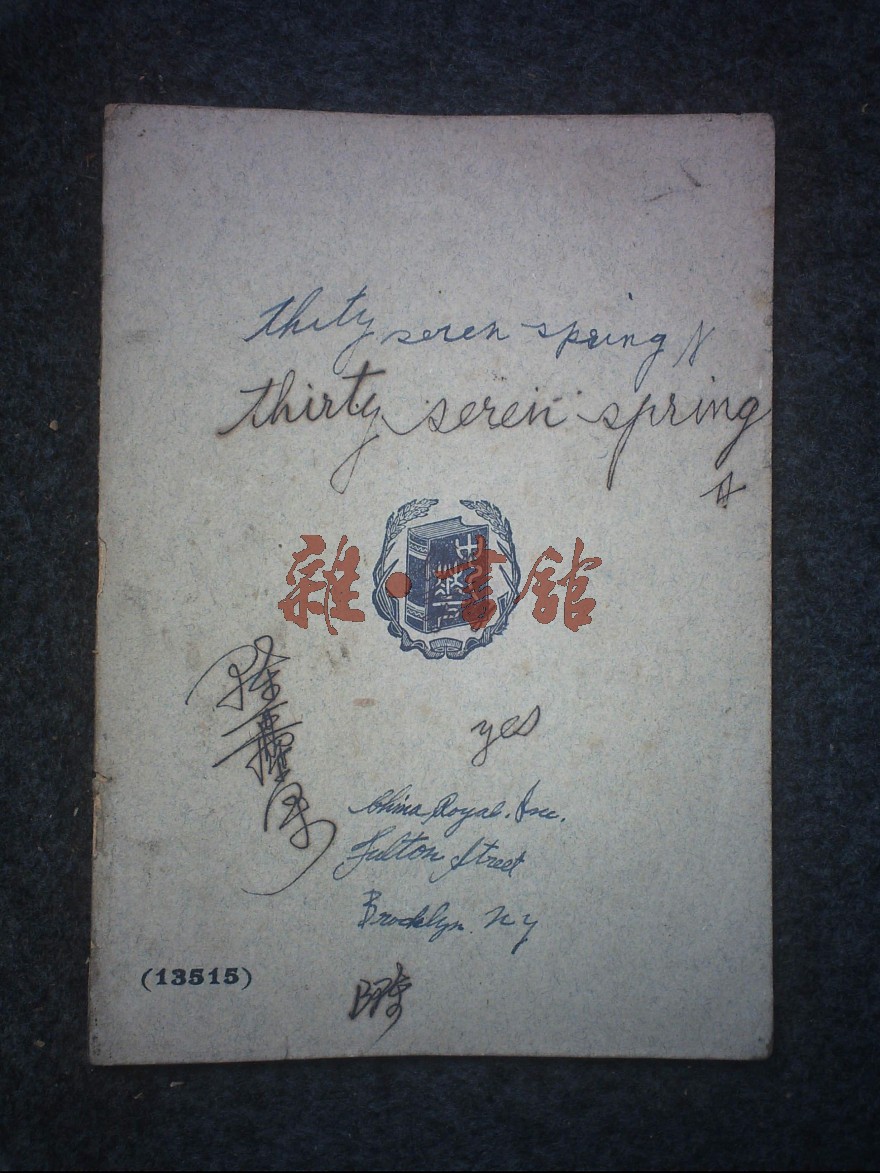 thity seren spring
thirty seren spring
雜·書館
yes
China Royal. Inc.
Fulton Street
Brooklyn. NY
(13515)